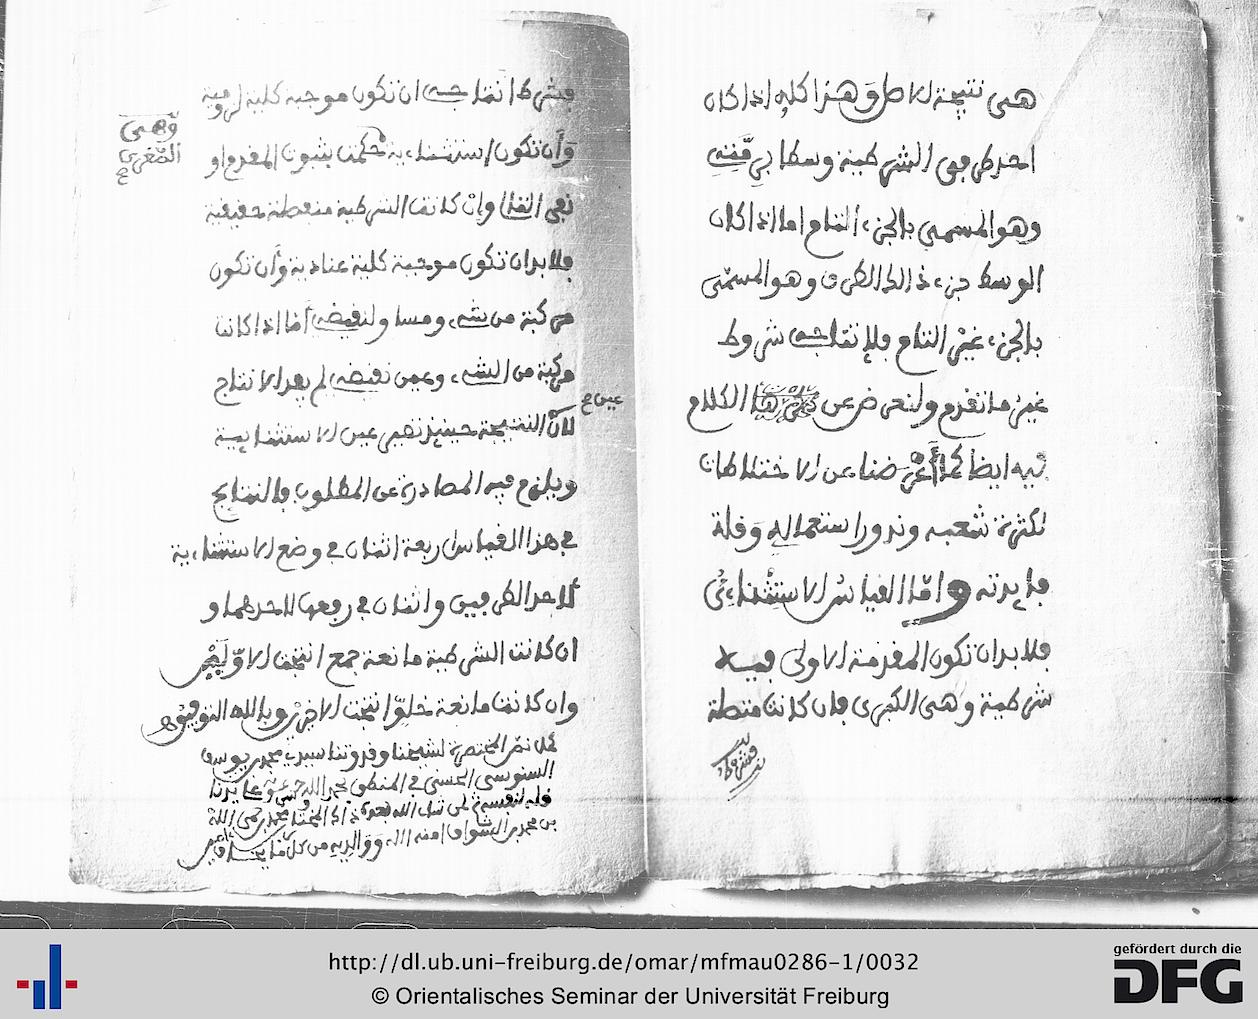 هي نتيجة الاصل وهذا كله اذا كان
احد طرفي الشرطية وسطا برمته
وهو المسمى بالجزء التام اما اذا كان
الوسط جزء ذالك الطرف وهو المسمى
بالجزء غير التام فلإنتاجه شروط
غير ما تقدم ولنعرض عن الكلام
فيه ايضا كما أعرضنا عن الاختلاطات
لكثرة شعبه وندور استعماله وقلة
فايدته واما القياس الاستثنائي
فلا بد ان تكون المقدمة الاولى فيه
شرطية وهي الكبرى فان كانت متصلة
فشرط
فشرط انتاجه ان تكون موجبة كلية لزومية
وأن تكون استثنائية حكمت بثبوت المقدم او
وهي
الصغرى
صح
نفي التالي وإن كانت الشرطية منفصلة حقيقية
فلا بد ان تكون موجبة كلية عنادية وأن تكون
مركبة من شيء ومساو لنقيضه أما اذا كانت
مركبة من الشيء وعين نقيضه لم يفد الانتاج
عين صح
لأن النتيجة حينئذ تصير عين الاستثنائية
ويلزم فيه المصادرة عن المطلوب فالنتايج
في هذا القياس اربعة اثنان في وضع الاستثنائية
لاحد الطرفين واثنان في رفعها لاحدهما و
ان كانت الشرطية مانعة جمع انتجت الاولين
وان كانت مانعة خلو انتجت الاخيرين وبالله التوفيق
كمل نص المختصر لشيخنا وقدوتنا سيدي محمد بن يوسف
السنوسي الحسني في المنطق بحمد الله وحسن عونه
بن محمد امنه الله ووالديه من كل ما يخاف
http://dl.ub.uni-freiburg.de/omar/mfmau0286-1/0032
© Orientalisches Seminar der Universität Freiburg
gefördert durch die
DFG